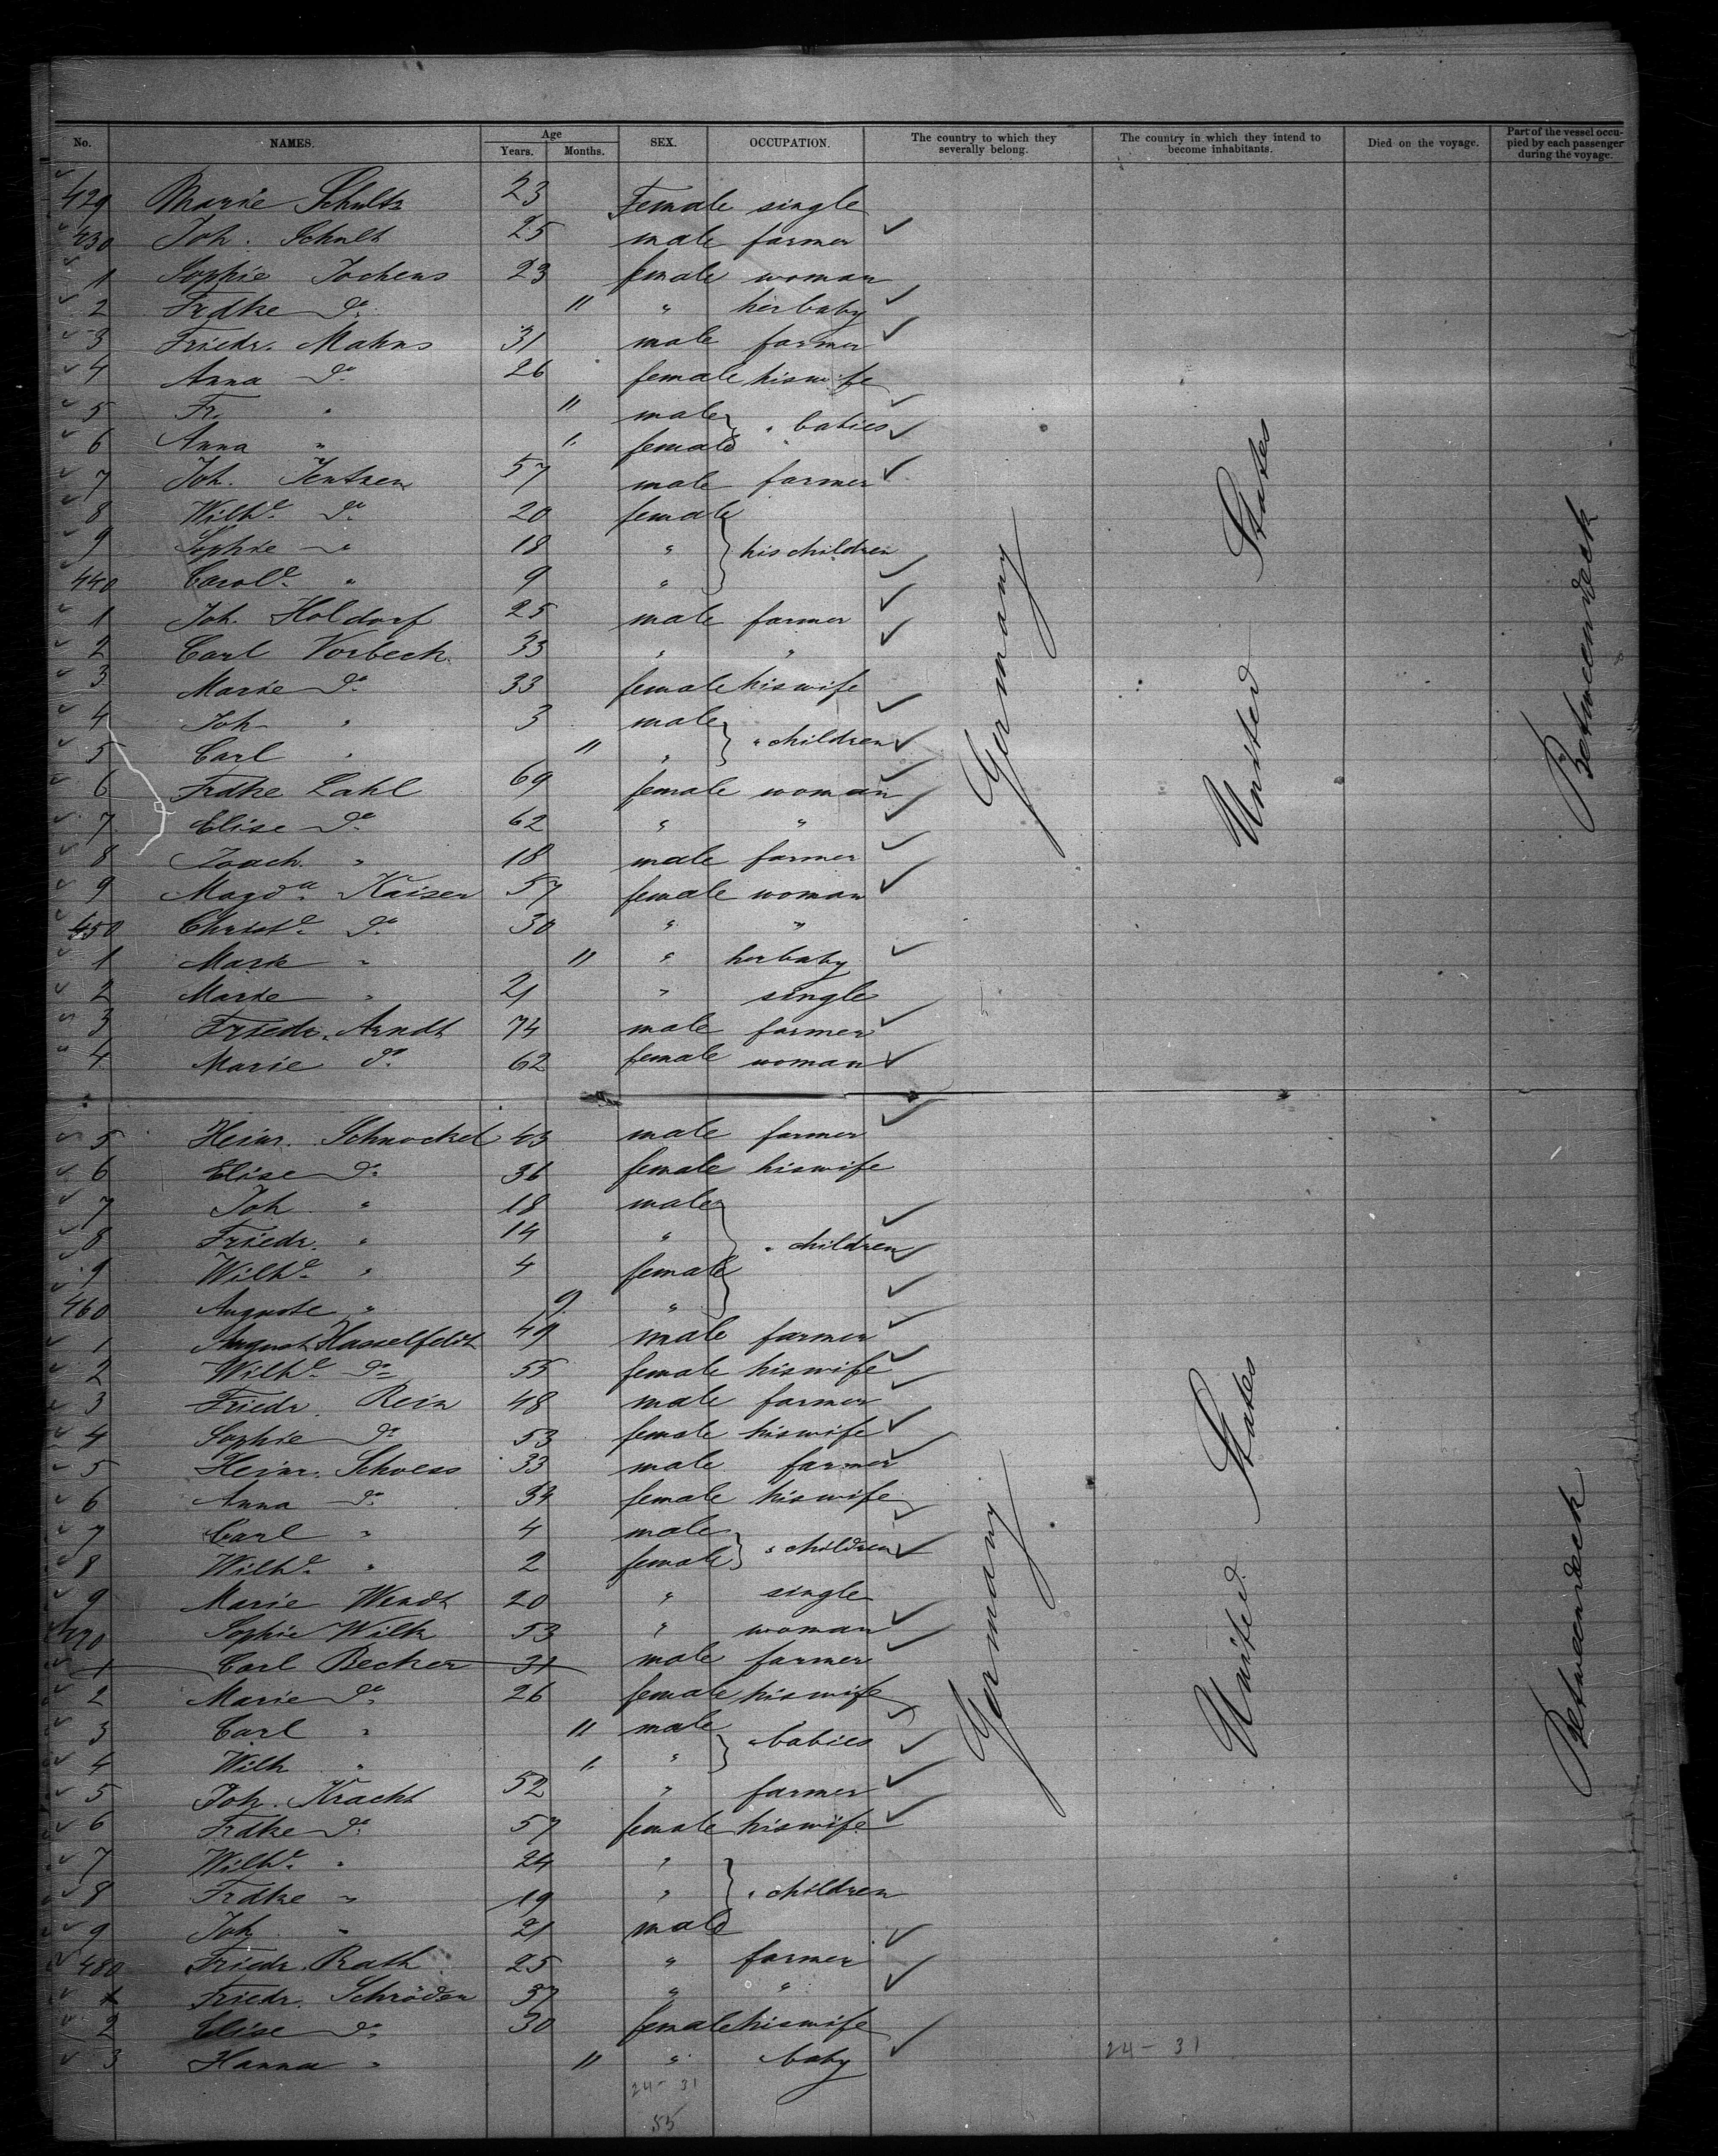 No. NAMES. Age Years. Months. SEX. OCCUPATION. The country to which they severally belong. The country in which they intend to become inhabitants. Died on the voyage. Part of the vessel occupied by each passenger during the voyage.
429 Marie Schultz 23 Female single
430 Joh. Schult 25 male farmer
1 Sophie Jochens 23 female woman
2 Frdke do 11 " her baby
3 Friedr. Mahns 31 male farmer
4 Anna do 26 female his wife
5 Fr. " 11 male } " babies
6 Anna " " female
7 Joh. Jentzen 57 male farmer
8 Wilhe do 20 female
9 Sophie " 18 " } his children
440 Carole " 9 "
1 Joh. Holdorf 25 male farmer
2 Carl Vorbeck 33 " "
3 Marie do 33 female his wife
4 Joh " 3 male } " children
5 Carl " 11 "
6 Frdke Lahl 69 female woman
7 Elise do 62 " "
8 Joach. " 18 male farmer
9 Magda Kaiser 57 female woman
450 Christe do 30 " "
1 Marie " 11 " her baby
2 Marie " 21 " single
3 Friedr. Arndt 74 male farmer
4 Marie do 62 female woman
Germany United States Betweendeck
5 Heinr. Schnockel 43 male farmer
6 Elise do 36 female his wife
7 Joh " 18 male
8 Friedr. " 14 " } " children
9 Wilhe " 4 female
460 Auguste " 9 "
1 August Hasselfeldt 49 male farmer
2 Wilhe do 55 female his wife
3 Friedr. Rein 48 male farmer
4 Sophie do 53 female his wife
5 Heinr. Schoess 33 male farmer
6 Anna do 34 female his wife
7 Carl " 4 male } " children
8 Wilhe " 2 female
9 Marie Wendt 20 " single
470 Sophie Wilk 53 " woman
1 Carl Becker 31 male farmer
2 Marie do 26 female his wife
3 Carl " 11 male } " babies
4 Wilh " " "
5 Joh. Kracht 52 " farmer
6 Frdke do 57 female his wife
7 Wilhe " 24 "
8 Frdke " 19 " } " children
9 Joh " 21 male
480 Friedr. Rath 25 " farmer
1 Friedr. Schröder 37 " "
2 Elise do 30 female his wife
3 Hanna " 11 " baby
Germany United States Betweendeck
24 - 31
24 - 31
55